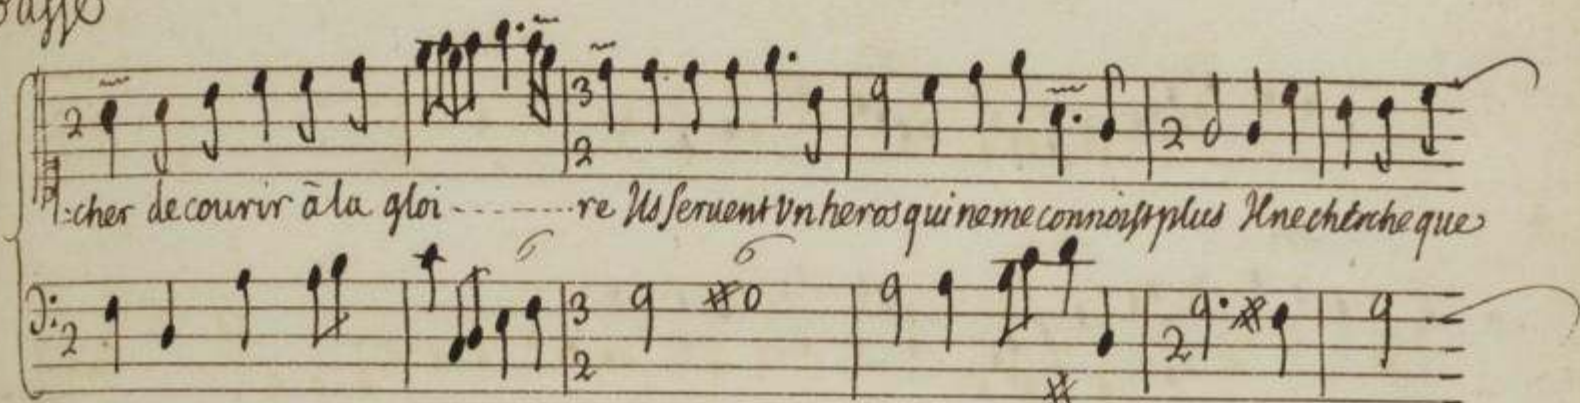 Basse
2 3 2 2
:cher de courir à la gloi - - - - - - - - - re Us seruent Vn heros qui ne me connoist plus Il ne cherche que
6 6
2 3 2 2